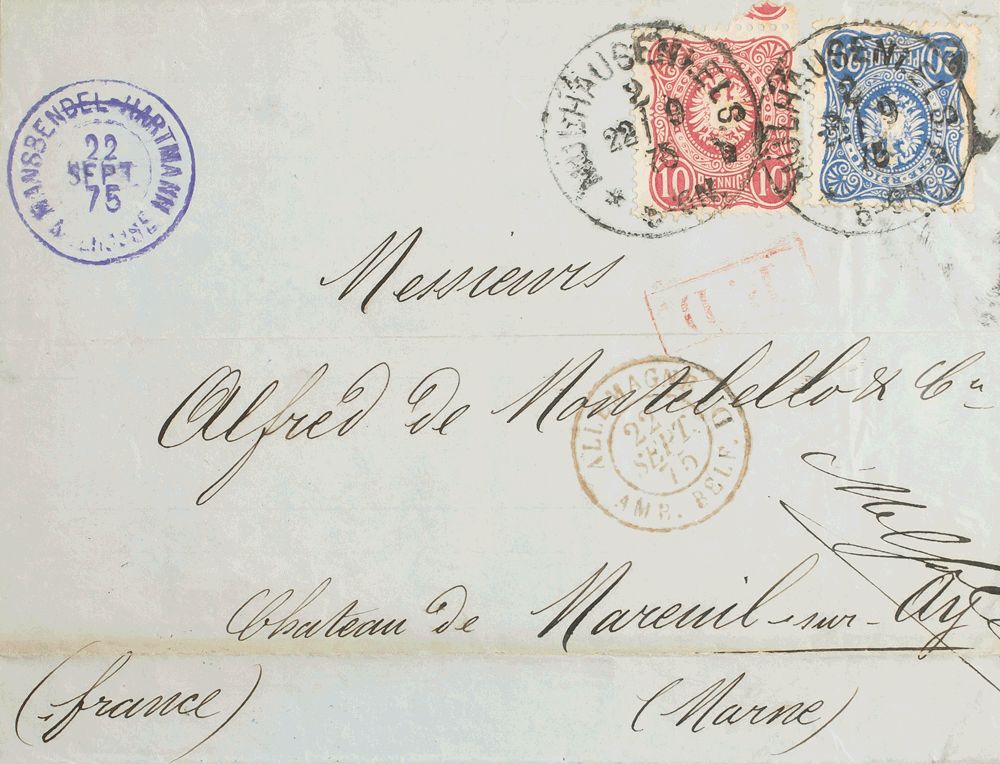 MANSBENDEL-HARTMANN
22
SEPT.
75
MULHAUSEN I. ELS.
22 9
75
5-6N.
10 PFENNIGE 10
MULHAUSEN I. ELS.
22 9
75
5-6N.
20
P.D.
Messieurs
Alfred de Montebello & Cie
ALLEMAGNE
22
SEPT.
75
AMB. BELF. D
Chateau de Mareuil-sur-Ay
(france)
(Marne)